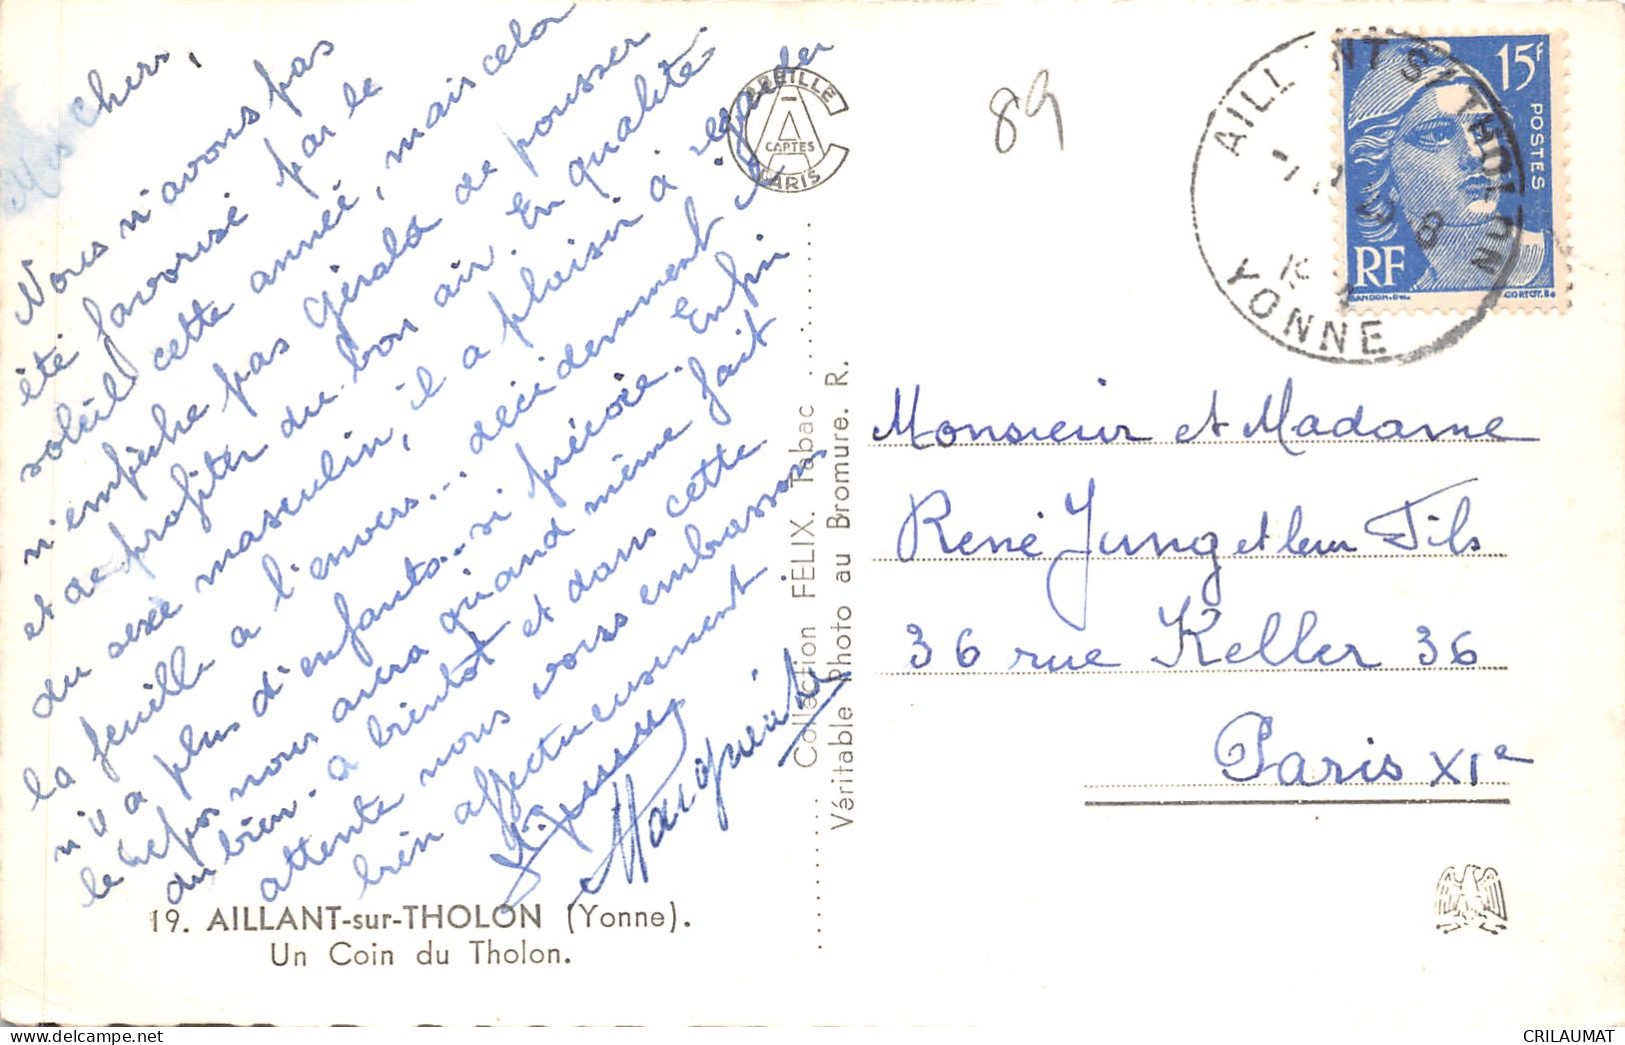 Mes chers,
Nous n'avons pas
été favorisé par le
soleil cette année, mais cela
n'empêche pas Gérald de pousser
et de profiter du bon air. En qualité
du sexe masculin, il a plaisir à regarder
la feuille à l'envers... décidemment il
n'y a plus d'enfants... si précoce. Enfin
le repos nous aura quand même fait
du bien. à bientôt et dans cette
attente nous vous embrassons
bien affectueusement.
Marguerite
19. AILLANT-sur-THOLON (Yonne).
Un Coin du Tholon.
ABEILLE
CARTES
PARIS
Collection FELIX. Tabac
Véritable Photo au Bromure. R.
89
AILLANT S/ THOLON
YONNE
15F
POSTES
RF
GANDON.DEL.
CORTOT.SC
Monsieur et Madame
René Jung et leur Fils
36 rue Keller 36
Paris XIe
CRILAUMAT